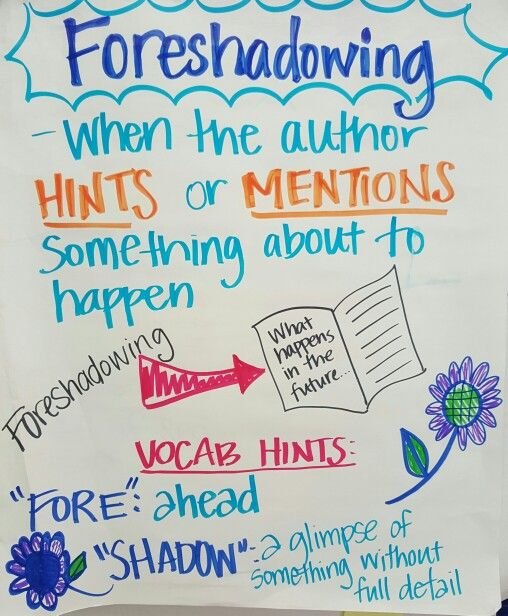 Foreshadowing
- When the author
HINTS or MENTIONS
Something about to
happen
Foreshadowing
What
happens
in the
future...
VOCAB HINTS:
"FORE": ahead
"SHADOW": a glimpse of
something without
full detail